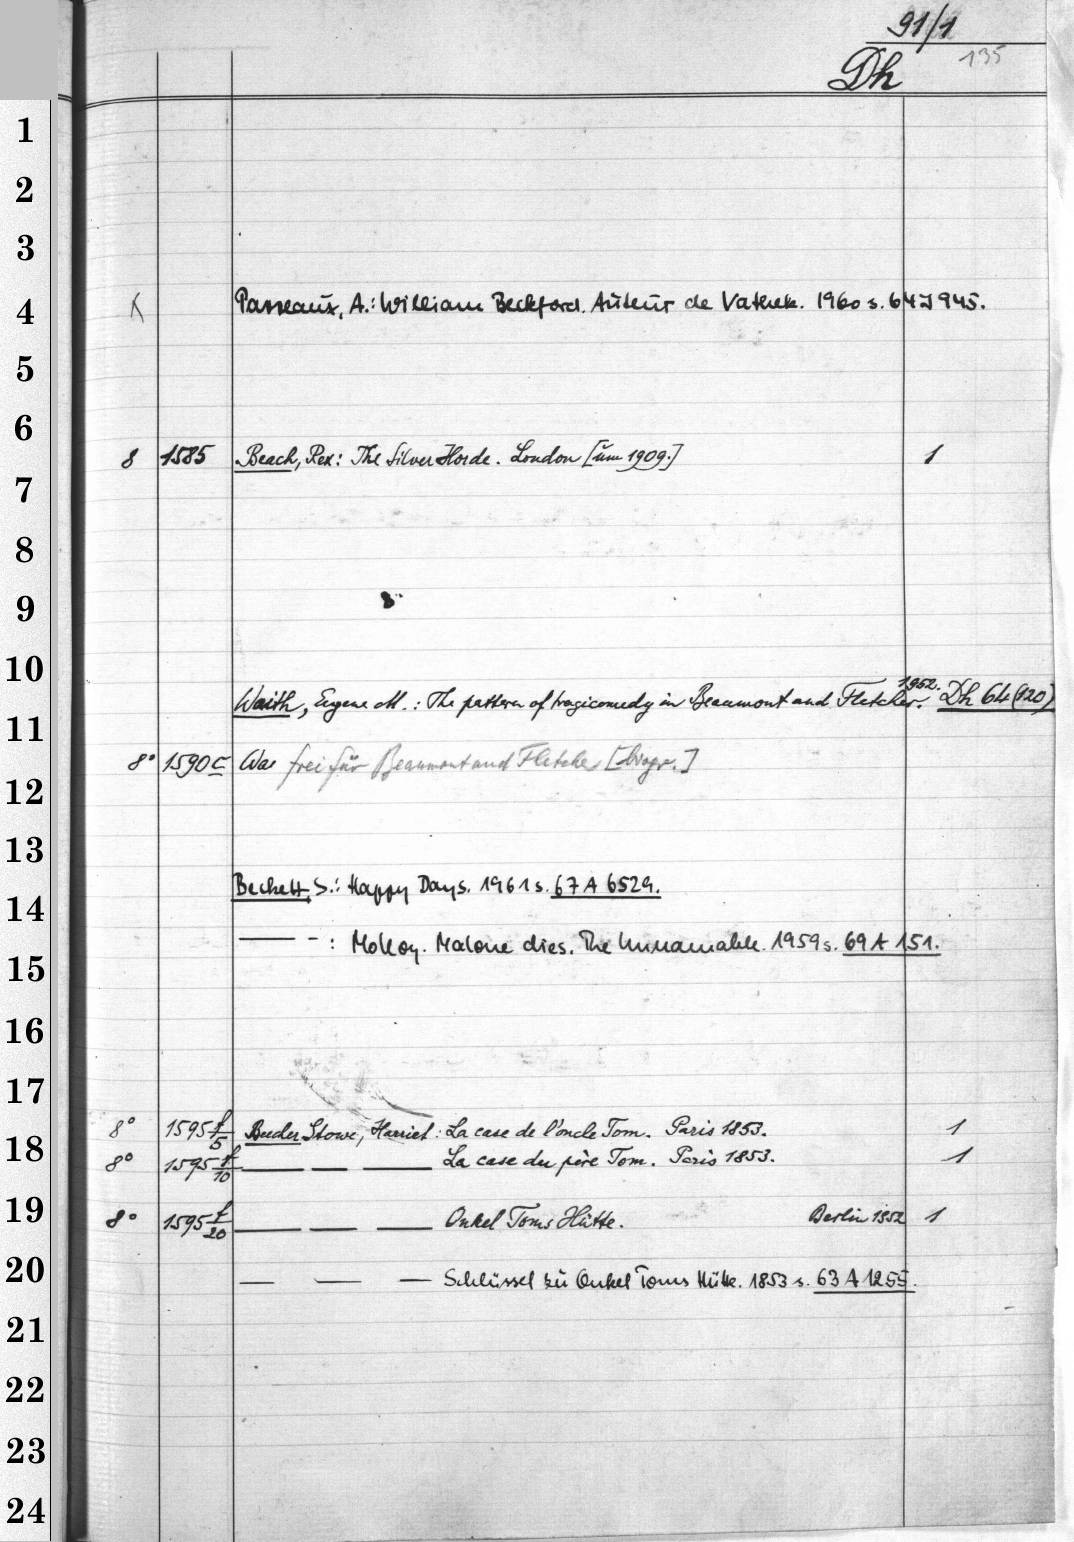 91/1
Dh 135
1
2
3
4 Parreaux, A.: William Beckford. Auteur de Vathek. 1960 s. 64 J 945.
5
6
8 1585 Beach, Rex: The Silver Horde. London [um 1909.] 1
7
8
9
10
Waith, Eugene M.: The pattern of tragicomedy in Beaumont and Fletcher. 1952. Dh 64(120)
11
8° 1590 c Was frei für Beaumont and Fletcher [biogr.]
12
13
Beckett, S.: Happy Days. 1961 s. 67 A 6529.
14
— - : Molloy. Malone dies. The Unnamable. 1959 s. 69 A 151.
15
16
17
8° 1595 f/5 Beecher Stowe, Harriet: La case de l'oncle Tom. Paris 1853. 1
18
8° 1595 f/10 — — — La case du père Tom. Paris 1853. 1
19 8° 1595 f/20 — — — Onkel Toms Hütte. Berlin 1852 1
20 — — — Schlüssel zu Onkel Toms Hütte. 1853 s. 63 A 1255.
21
22
23
24